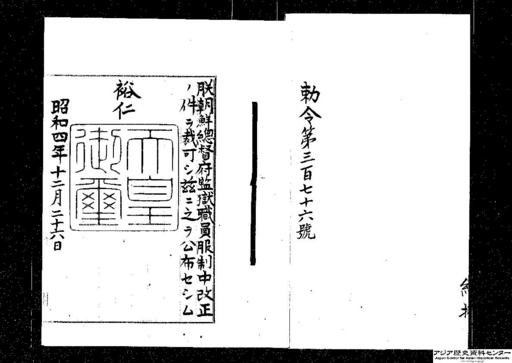 勅令第三百七十六號
朕朝鮮總督府監獄職員服制中改正
ノ件ヲ裁可シ茲ニ之ヲ公布セシム
裕仁
天皇御璽
昭和四年十二月二十六日
アジア歴史資料センター
Japan Center for Asian Historical Records